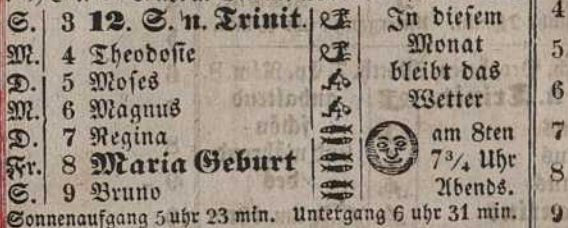 S. 3 12. S. n. Trinit. In diesem
M. 4 Theodosie Monat
D. 5 Moses bleibt das
M. 6 Magnus Wetter
D. 7 Regina am 8ten
Fr. 8 Maria Geburt 7¾ Uhr
S. 9 Bruno Abends.
Sonnenaufgang 5 uhr 23 min. Untergang 6 uhr 31 min.
4
5
6
7
8
9